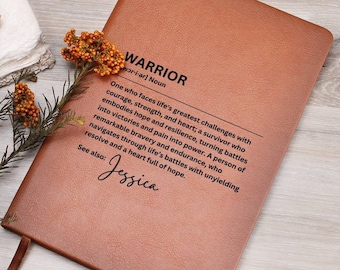 WARRIOR
[wɔr-i-ər] Noun
One who faces life's greatest challenges with
courage, strength, and heart; a survivor who
embodies hope and resilience, turning battles
into victories and pain into power. A person of
remarkable bravery and endurance, who
navigates through life's battles with unyielding
resolve and a heart full of hope.
See also:
Jessica